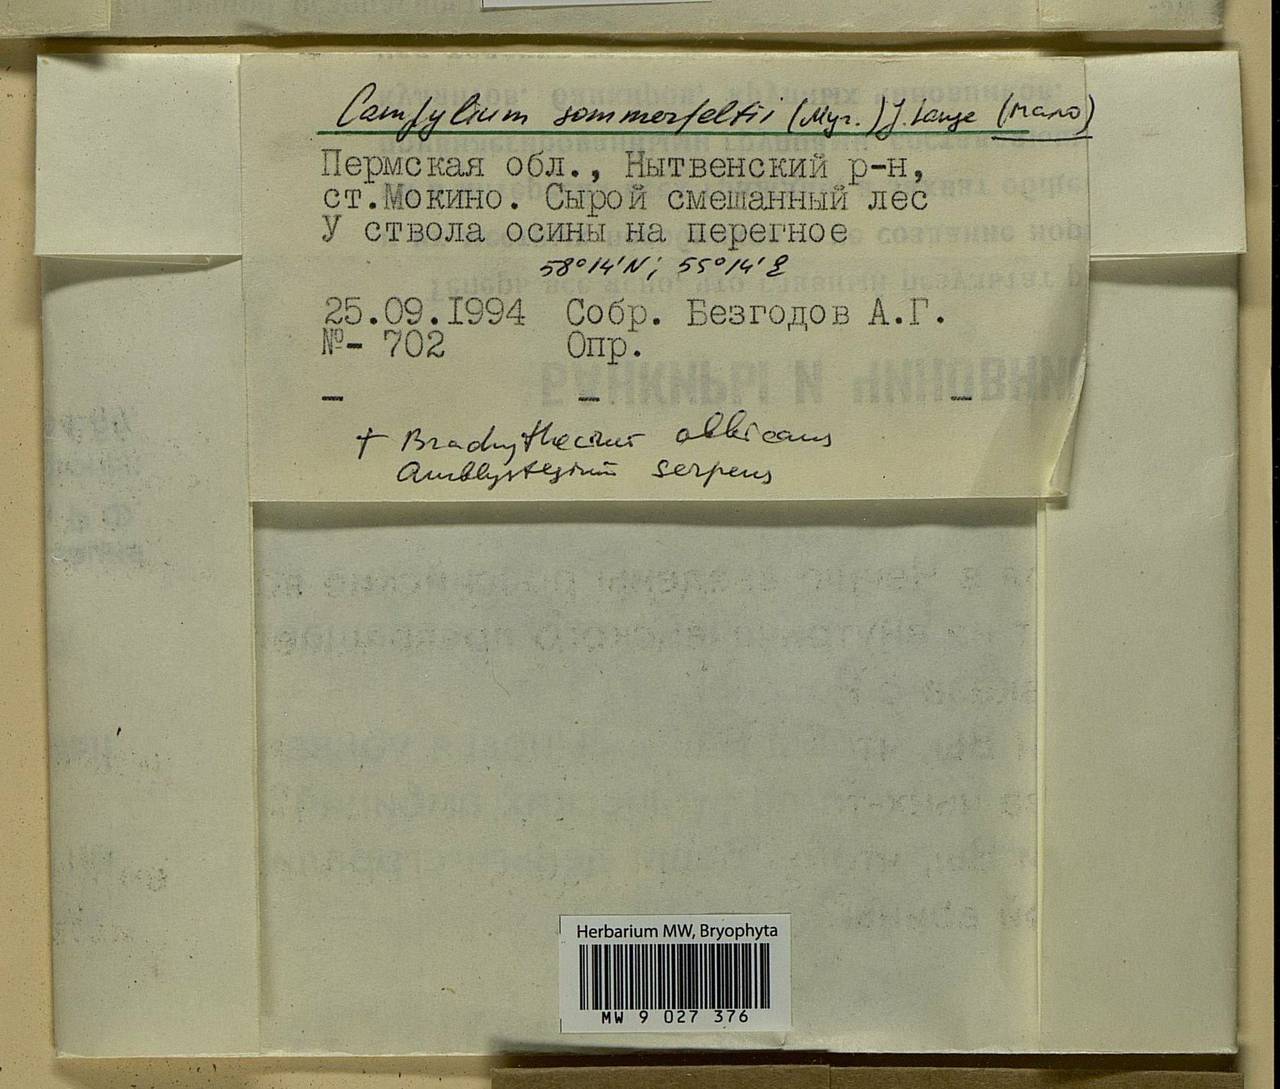 Campylium sommerfeltii (Myr.) J. Lange (мало)
Пермская обл., Нытвенский р-н,
ст.Мокино. Сырой смешанный лес
У ствола осины на перегное
58°14'N; 55°14'E
25.09.1994 Собр. Безгодов А.Г.
№- 702 Опр.
+ Brachythecium albicans
Amblystegium serpens
Herbarium MW, Bryophyta
MW 9 027 376